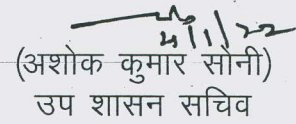 4/1/22
(अशोक कुमार सोनी)
उप शासन सचिव